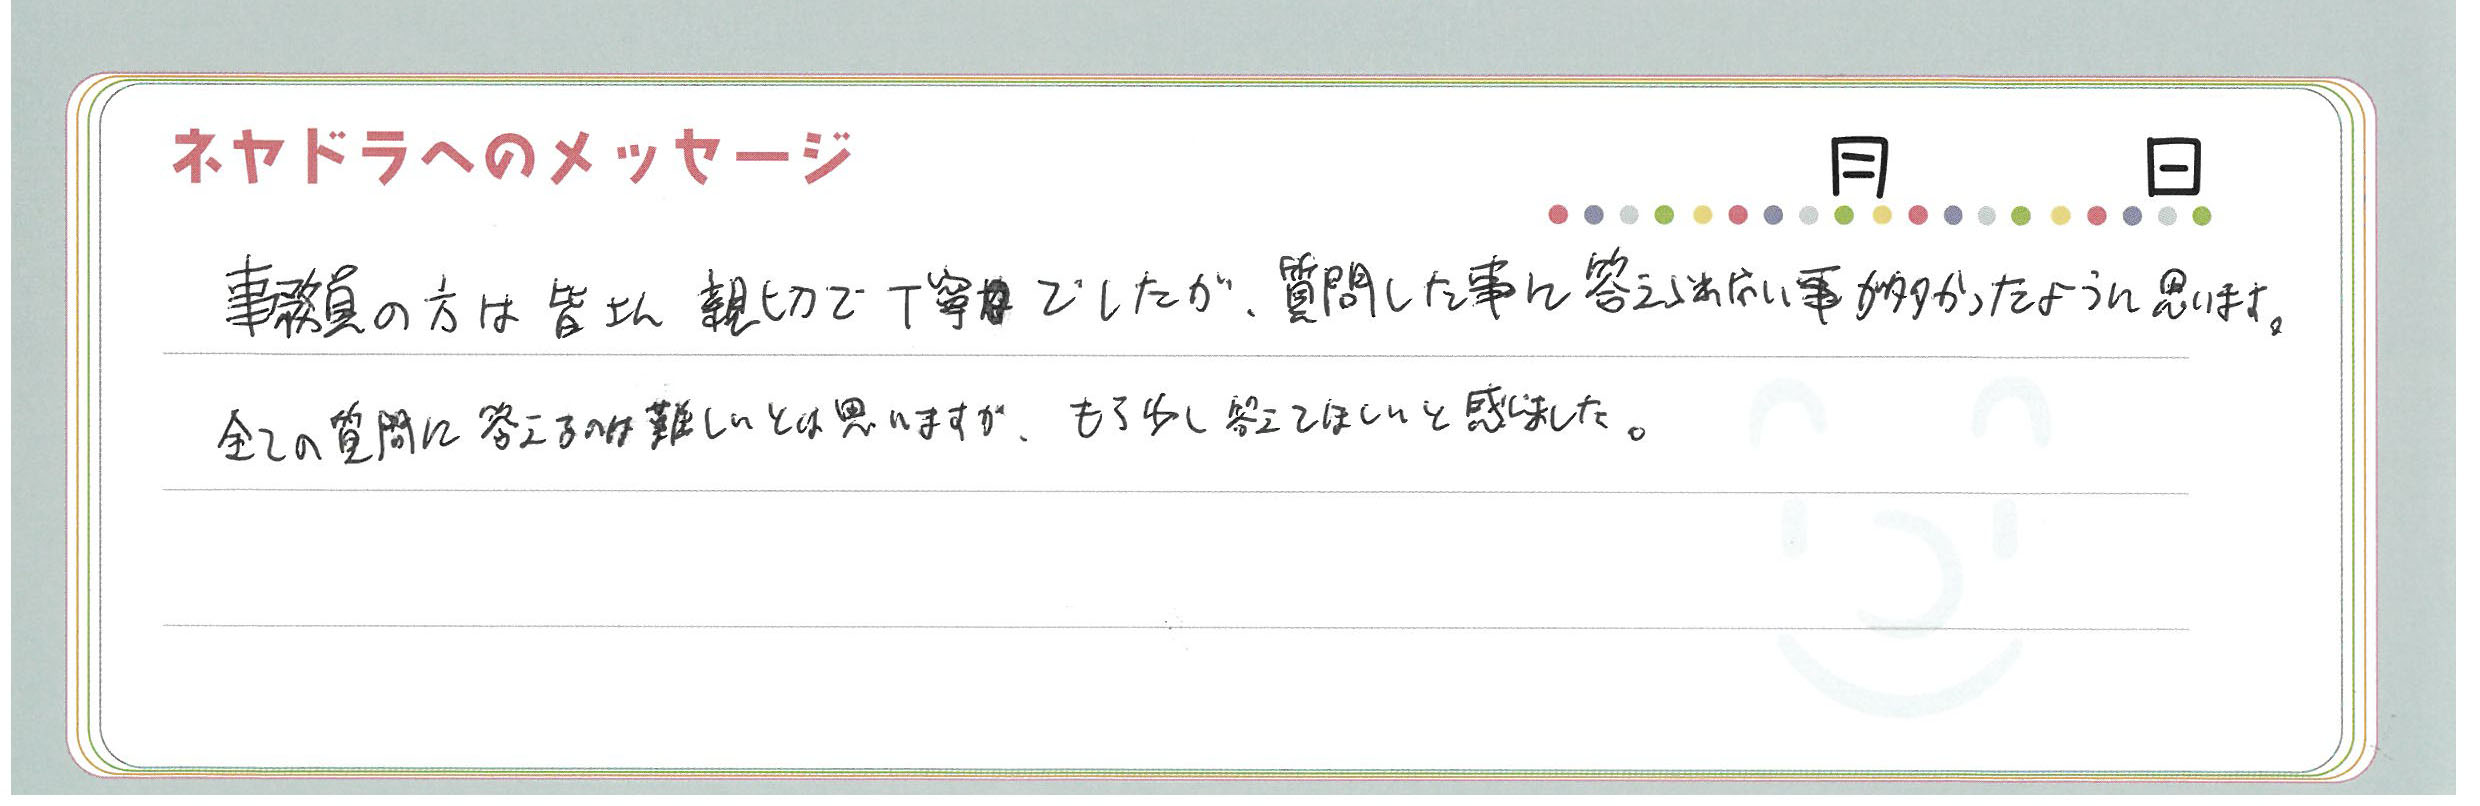 ネヤドラへのメッセージ
月 日
事務員の方は皆さん親切で丁寧でしたが、質問した事に答えられない事が多かったように思います。
全ての質問に答えるのは難しいとは思いますが、もう少し答えてほしいと感じました。